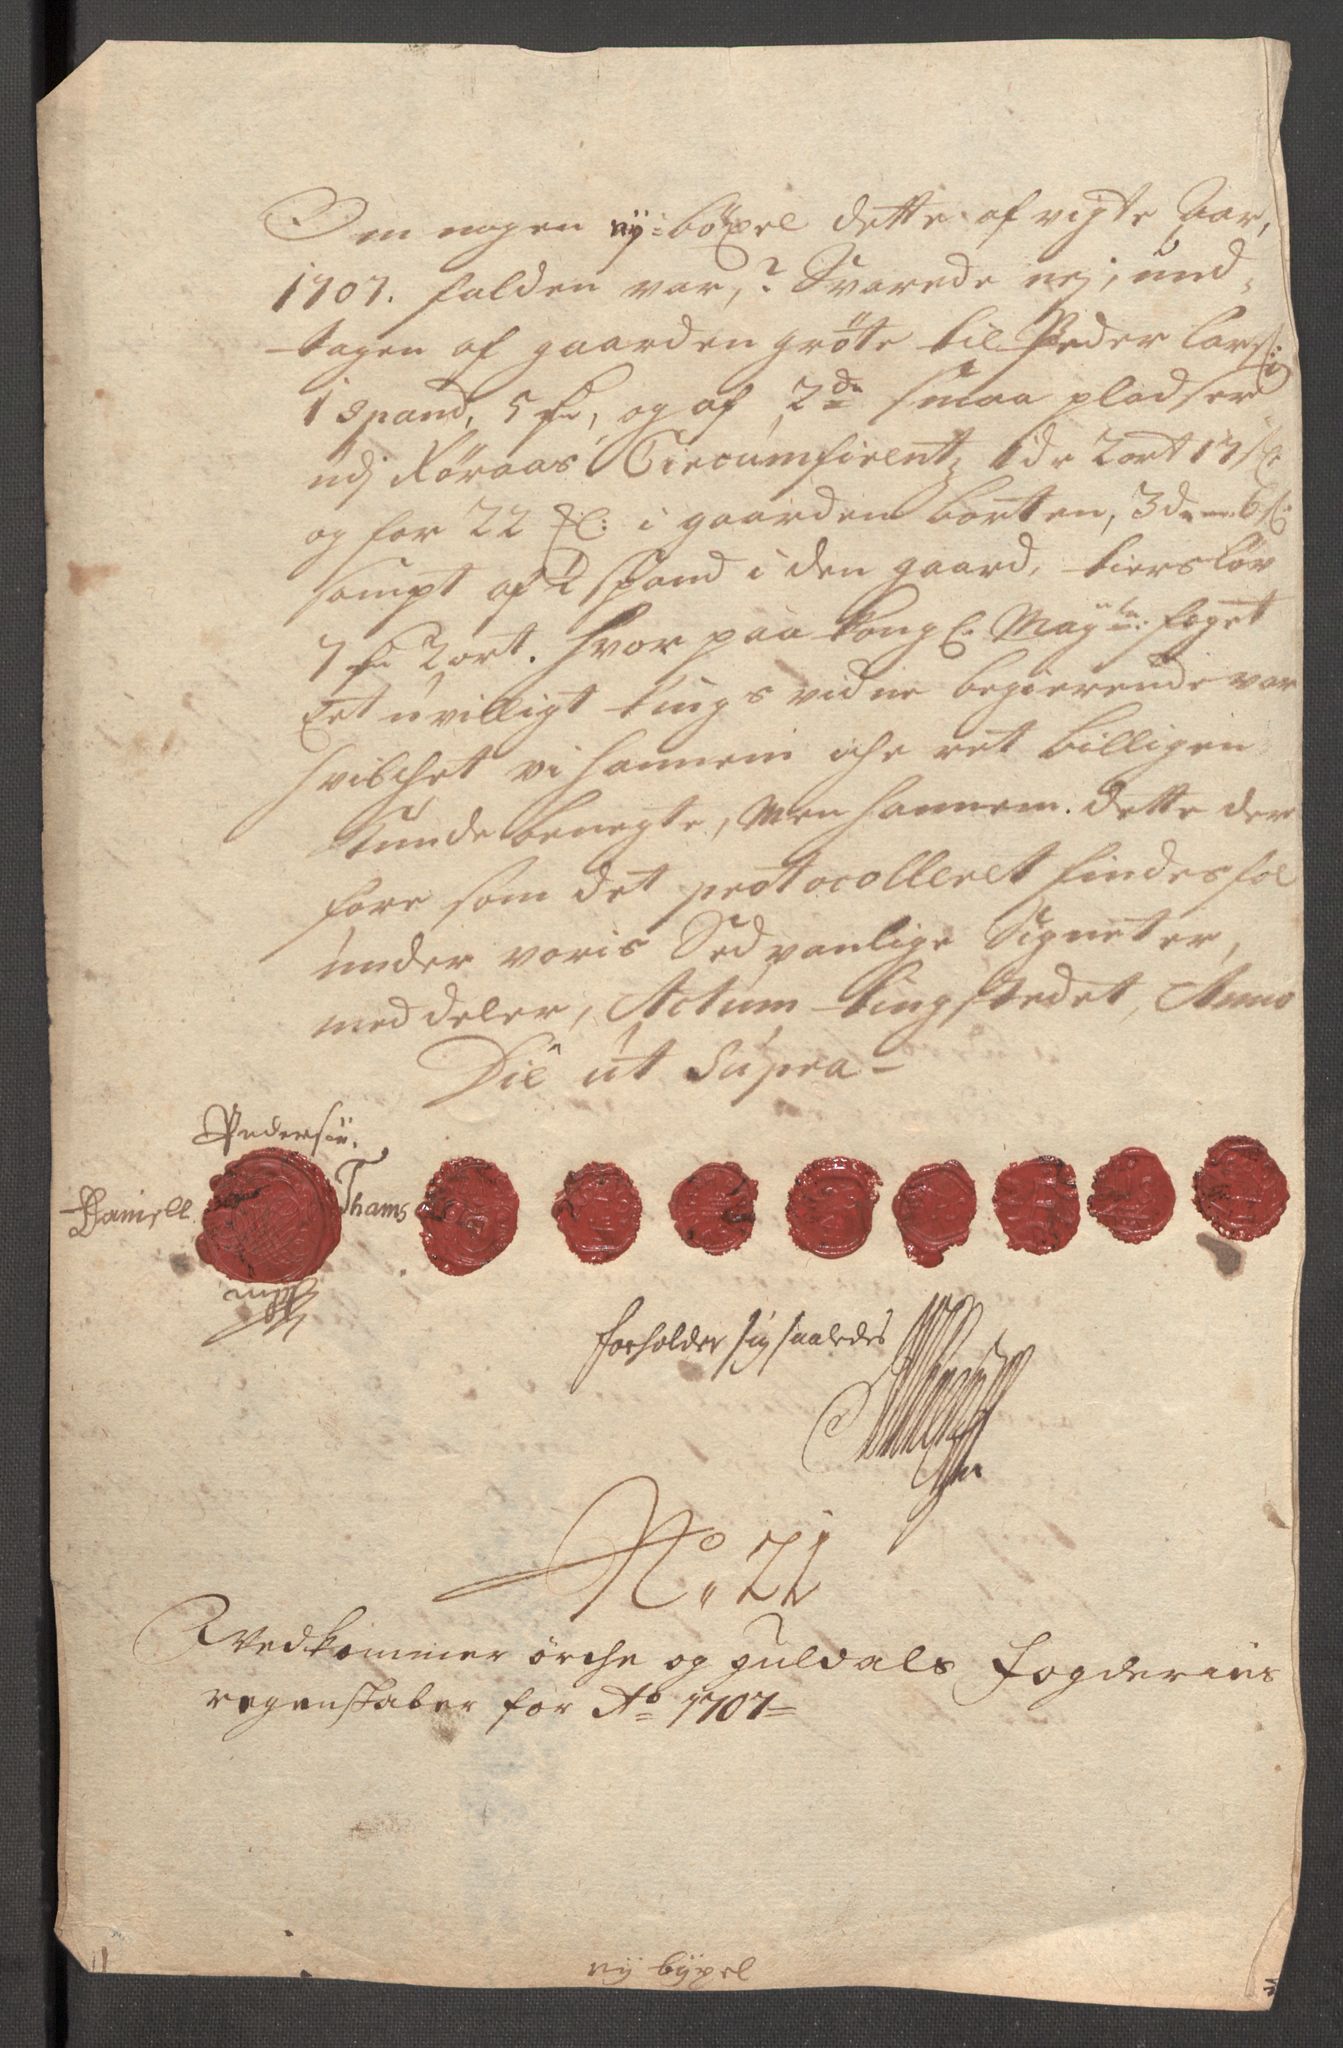 Om nogen ny: böxel dette afvigte Aar,
1707. falden var,? Svarede nej, und-
tagen af gaarden gröte til Peder Lars:
1 spand, 5 , og af 2de smaa pladser
udj Röraas Circumferentz 1 dr 2 ort 17
og for 22 i gaarden borten, 3 6
sampt af 2 spand i den gaard,
7 2 ort. hvor paa kongl. Mayts: foget
Eet uvilligt tings vidne begierende var
hvilchet vi hannem iche ret billigen
kunde benegte, Men hannem dette der
fore som det protocolleret findes
under voris Sedvanlige Signeter,
meddeler, Actum tingstedet, Anno
Die ut Supra-
Pedersön.
Daniell Thams
mp
forholder sig saaledes
No. 21
Vedkommer örche og guldals fogderies
regenskaber for Ao 1707
ny byxel